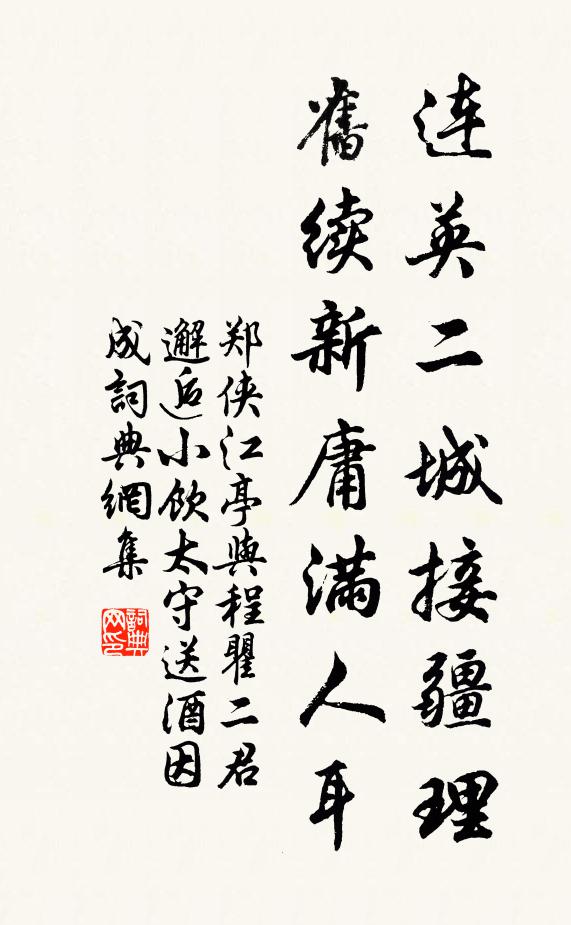 连英二城接疆理
旧续新庸满人耳
郑侠江亭與程瞿二君
邂逅小飲太守送酒因
成詞典網集
詞典网印